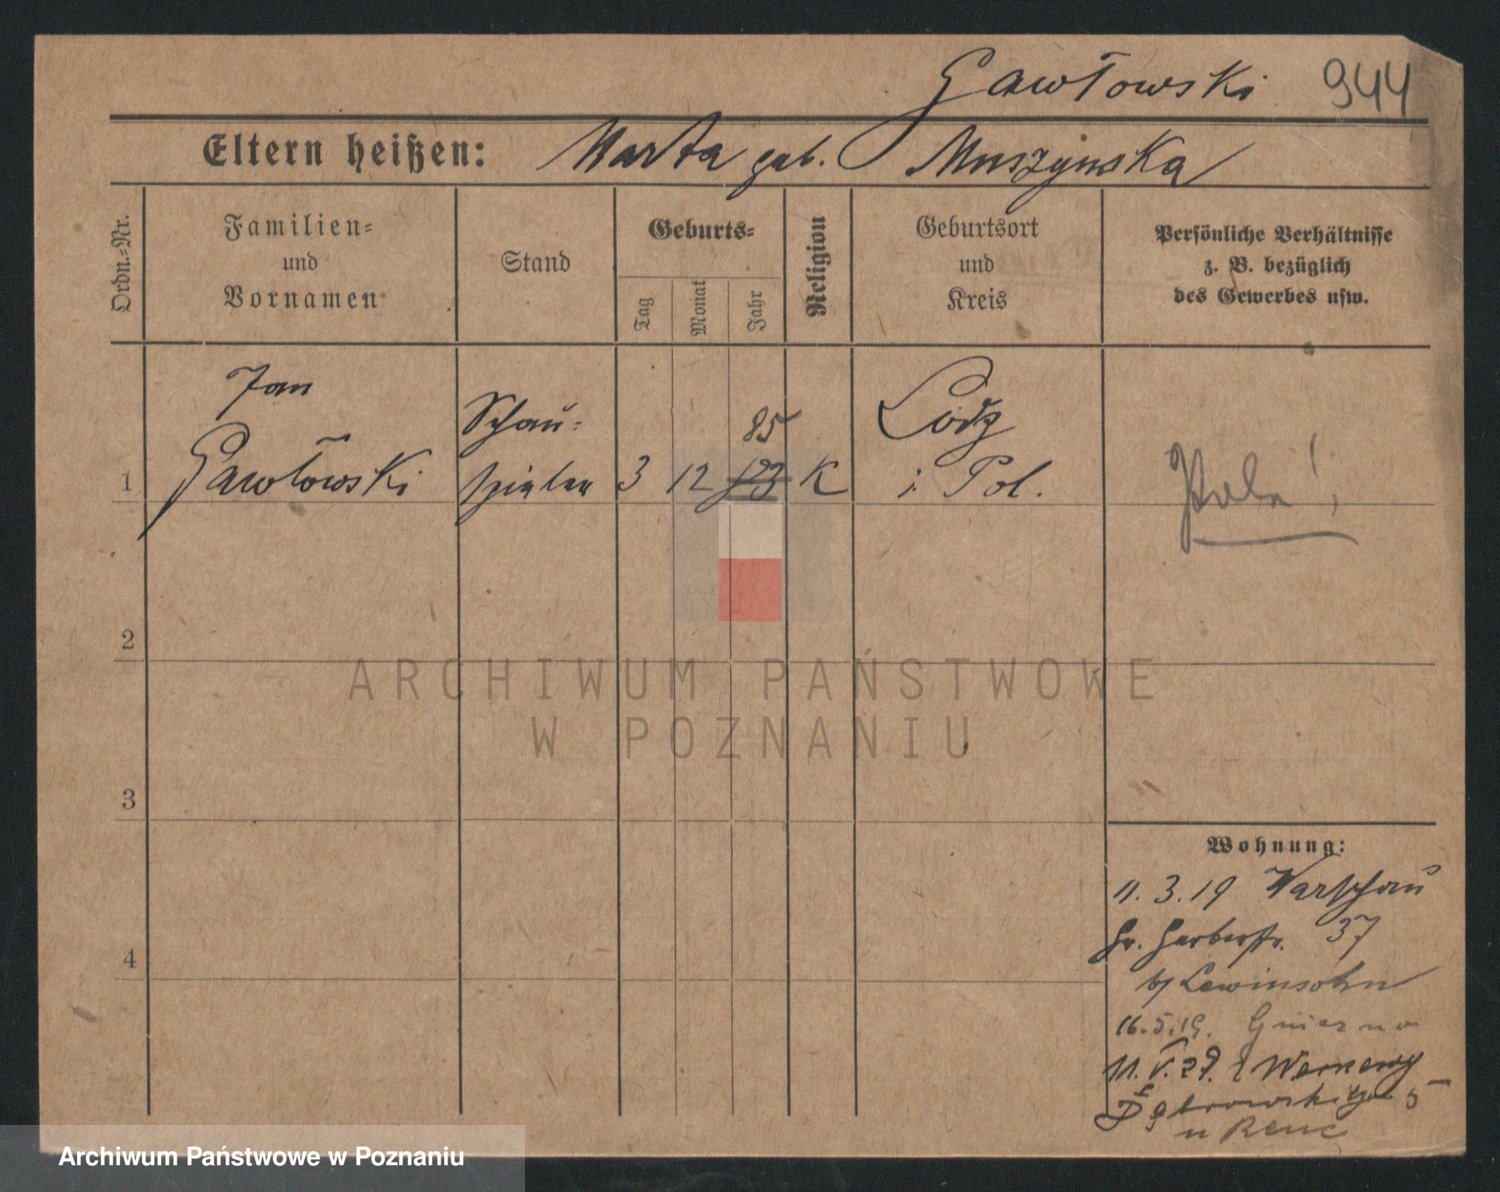 Gawłowski 944
Eltern heißen: Marta geb. Muszyńska
Ordn.-Nr.
Familien-
und
Vornamen
Stand
Geburts-
Tag
Monat
Jahr
Religion
Geburtsort
und
Kreis
Persönliche Verhältnisse
z. B. bezüglich
des Gewerbes usw.
1
Jan
Gawłowski
Schau-
spieler
3 12
85
K
Lodz
i. Pol.
Pole!
2
3
4
Wohnung:
11.3.19 Warschau
Gr. Gerberstr. 37
b/ Lewinsohn
16.5.19. Gniezno
11.V.29. z
Dąbrowskiego 5
u
ARCHIWUM PAŃSTWOWE
W POZNANIU
Archiwum Państwowe w Poznaniu